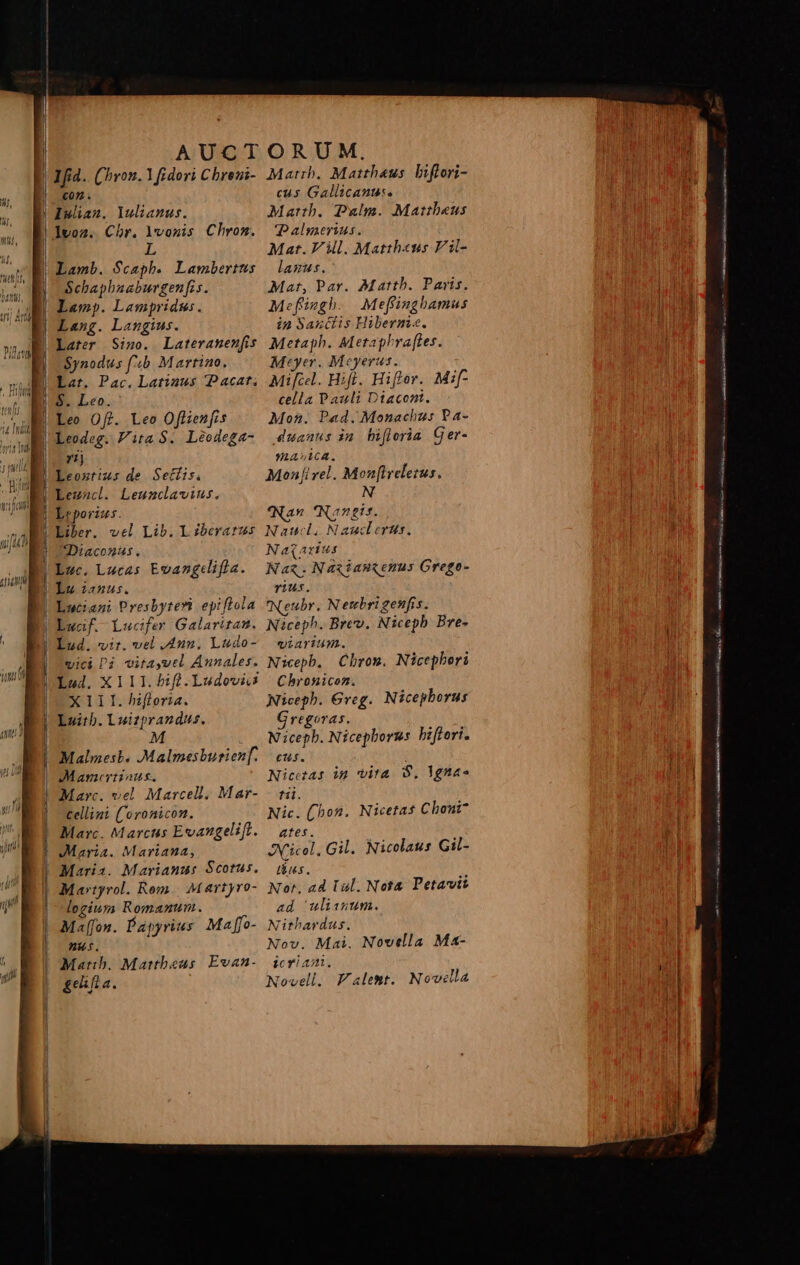 AUCTORUM.
Isid. Chron. Isidori Chroni-
con.
Iulian. Iulianus.
Ivon. Chr. Ivonis Chron.
L
Lamb. Scaph. Lambertus
Schaphnaburgensis.
Lamp. Lampridus.
Lang. Langius.
Later Sino. Lateranensis
Synodus sub Martino.
Lat. Pac. Latinus Pacat.
S. Leo.
Leo Ost. Leo Ostiensis
Leodeg. Vita S. Leodega-
rij
Leontius de Sectis.
Leuncl. Leunclavius.
Leporius.
Liber. vel Lib. Liberatus
Diaconus.
Luc. Lucas Evangelista.
Lu ianus.
Luciani Presbyteri epistola
Lucif. Lucifer Galaritan.
Lud. vit. vel Ann. Ludo-
vici Pi vita, vel Annales.
Lud. XIII. hist. Ludovici
XIII. historia.
Luith. Luitprandus.
M
Malmesb. Malmesburiens.
Mamertinus.
Marc. vel Marcell. Mar-
cellini Coronicon.
Marc. Marcus Evangelist.
Maria. Mariana,
Maria. Marianus Scotus.
Martyrol. Rom. Martyro-
logium Romanum.
Masson. Papyrius Masso-
nus.
Matth. Matthæus Evan-
gelista.
Matth. Matthæus histori-
cus Gallicanus.
Matth. Palm. Matthæus
Palmerius.
Mat. Vill. Matthæus Vil-
lanus.
Mat, Par. Matth. Paris.
Messingh. Messinghamus
in Sanctis Hiberniæ.
Metaph. Metaphrastes.
Meyer. Meyerus.
Miscel. Hist. Histor. Mis-
cella Pauli Diaconi.
Mon. Pad. Monachus Pa-
duanus in historia Ger-
manica.
Monstrel. Monstreletus.
N
Nan Nangis.
Naucl. Nauclerus.
Nazarius
Naz. Nazianzenus Grego-
rius.
Neubr. Neubrigensis.
Niceph. Brev. Niceph Bre-
viarium.
Niceph. Chron. Nicephori
Chronicon.
Niceph. Greg. Nicephorus
Gregoras.
Niceph. Nicephorus histori.
cus.
Nicetas in vita S. Igna-
tii.
Nic. Chon. Nicetas Choni-
ates.
Nicol. Gil. Nicolaus Gil-
lius.
Not. ad Iul. Nota Petavii
ad ulianum.
Nithardus.
Nov. Mai. Novella Ma-
ioriani.
Novell. Valent. Novella